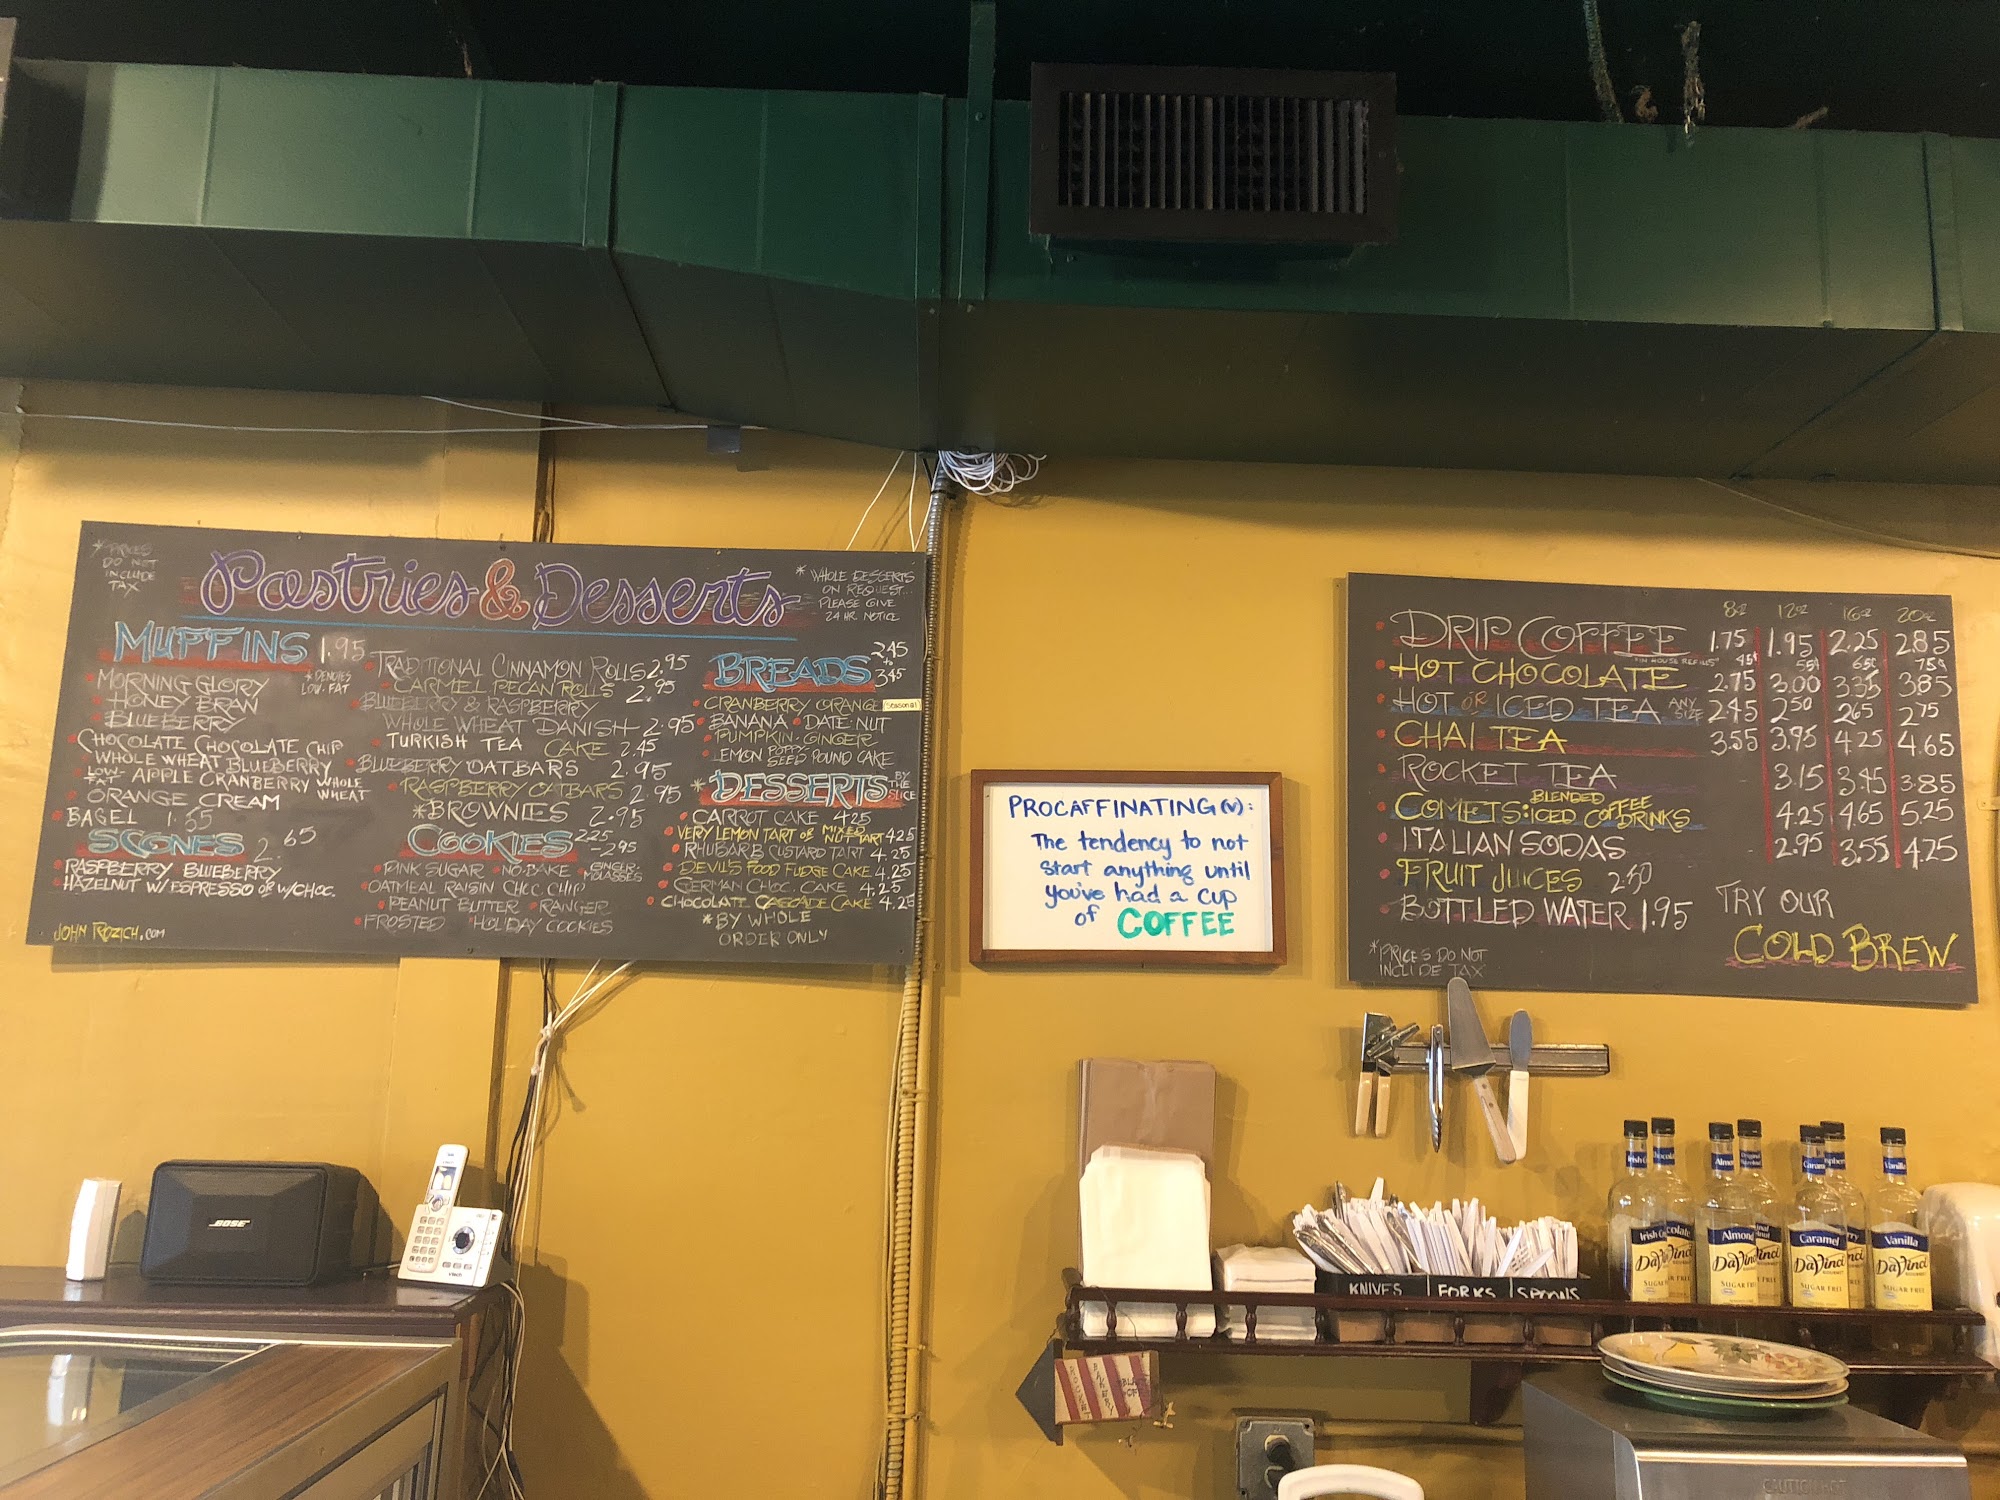 * PRICES
DO NOT
INCLUDE
TAX
Pastries & Desserts
* WHOLE DESSERTS
ON REQUEST...
PLEASE GIVE
24 HR NOTICE
MUFFINS 1.95
* DENOTES
LOW-FAT
MORNING GLORY
HONEY BRAN
BLUEBERRY
CHOCOLATE CHOCOLATE CHIP
WHOLE WHEAT BLUEBERRY
LOW-FAT APPLE CRANBERRY WHOLE WHEAT
ORANGE CREAM
BAGEL 1.35
SCONES 2.65
RASPBERRY BLUEBERRY
HAZELNUT W/ESPRESSO OR W/CHOC.
JOHN ROZICH.COM
TRADITIONAL CINNAMON ROLLS 2.95
CARMEL PECAN ROLLS 2.95
BLUEBERRY & RASPBERRY
WHOLE WHEAT DANISH 2.95
TURKISH TEA CAKE 2.45
BLUEBERRY OATBARS 2.95
RASPBERRY OATBARS 2.95
*BROWNIES 2.95
COOKIES 2.25-2.95
PINK SUGAR • NO-BAKE • GINGER-MOLASSES
OATMEAL RAISIN CHOC. CHIP
PEANUT BUTTER • RANGER
FROSTED HOLIDAY COOKIES
BREADS 2.45 to 3.45
CRANBERRY ORANGE Seasonal
BANANA • DATE-NUT
PUMPKIN-GINGER
LEMON POPPY SEED POUND CAKE
* DESSERTS BY THE SLICE
CARROT CAKE 4.25
VERY LEMON TART OR MIXED NUT TART 4.25
RHUBARB CUSTARD TART 4.25
DEVIL'S FOOD FUDGE CAKE 4.25
GERMAN CHOC. CAKE 4.25
CHOCOLATE CASCADE CAKE 4.25
*BY WHOLE
ORDER ONLY
PROCAFFINATING (v):
The tendency to not
start anything until
you've had a cup
of COFFEE
8oz 12oz 16oz 20oz
DRIP COFFEE 1.75 1.95 2.25 2.85
"IN HOUSE REFILLS" 45¢ 55¢ 65¢ 75¢
HOT CHOCOLATE 2.75 3.00 3.35 3.85
HOT OR ICED TEA ANY SIZE 2.45 2.50 2.65 2.75
CHAI TEA 3.55 3.95 4.25 4.65
ROCKET TEA 3.15 3.45 3.85
COMETS: BLENDED ICED COFFEE DRINKS 4.25 4.65 5.25
ITALIAN SODAS 2.95 3.55 4.25
FRUIT JUICES 2.50
BOTTLED WATER 1.95
TRY OUR
COLD BREW
*PRICES DO NOT
INCLUDE TAX
BOSE
vtech
KNIVES FORKS SPOONS
Almond
Caramel
Vanilla
DaVinci DaVinci DaVinci DaVinci
SUGAR FREE
CAUTION HOT